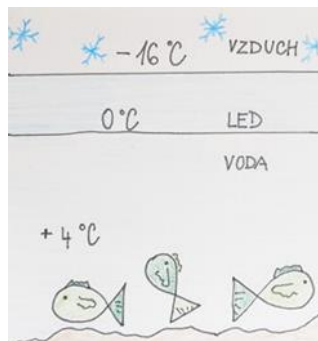 -16°C VZDUCH
0°C LED
VODA
+4°C